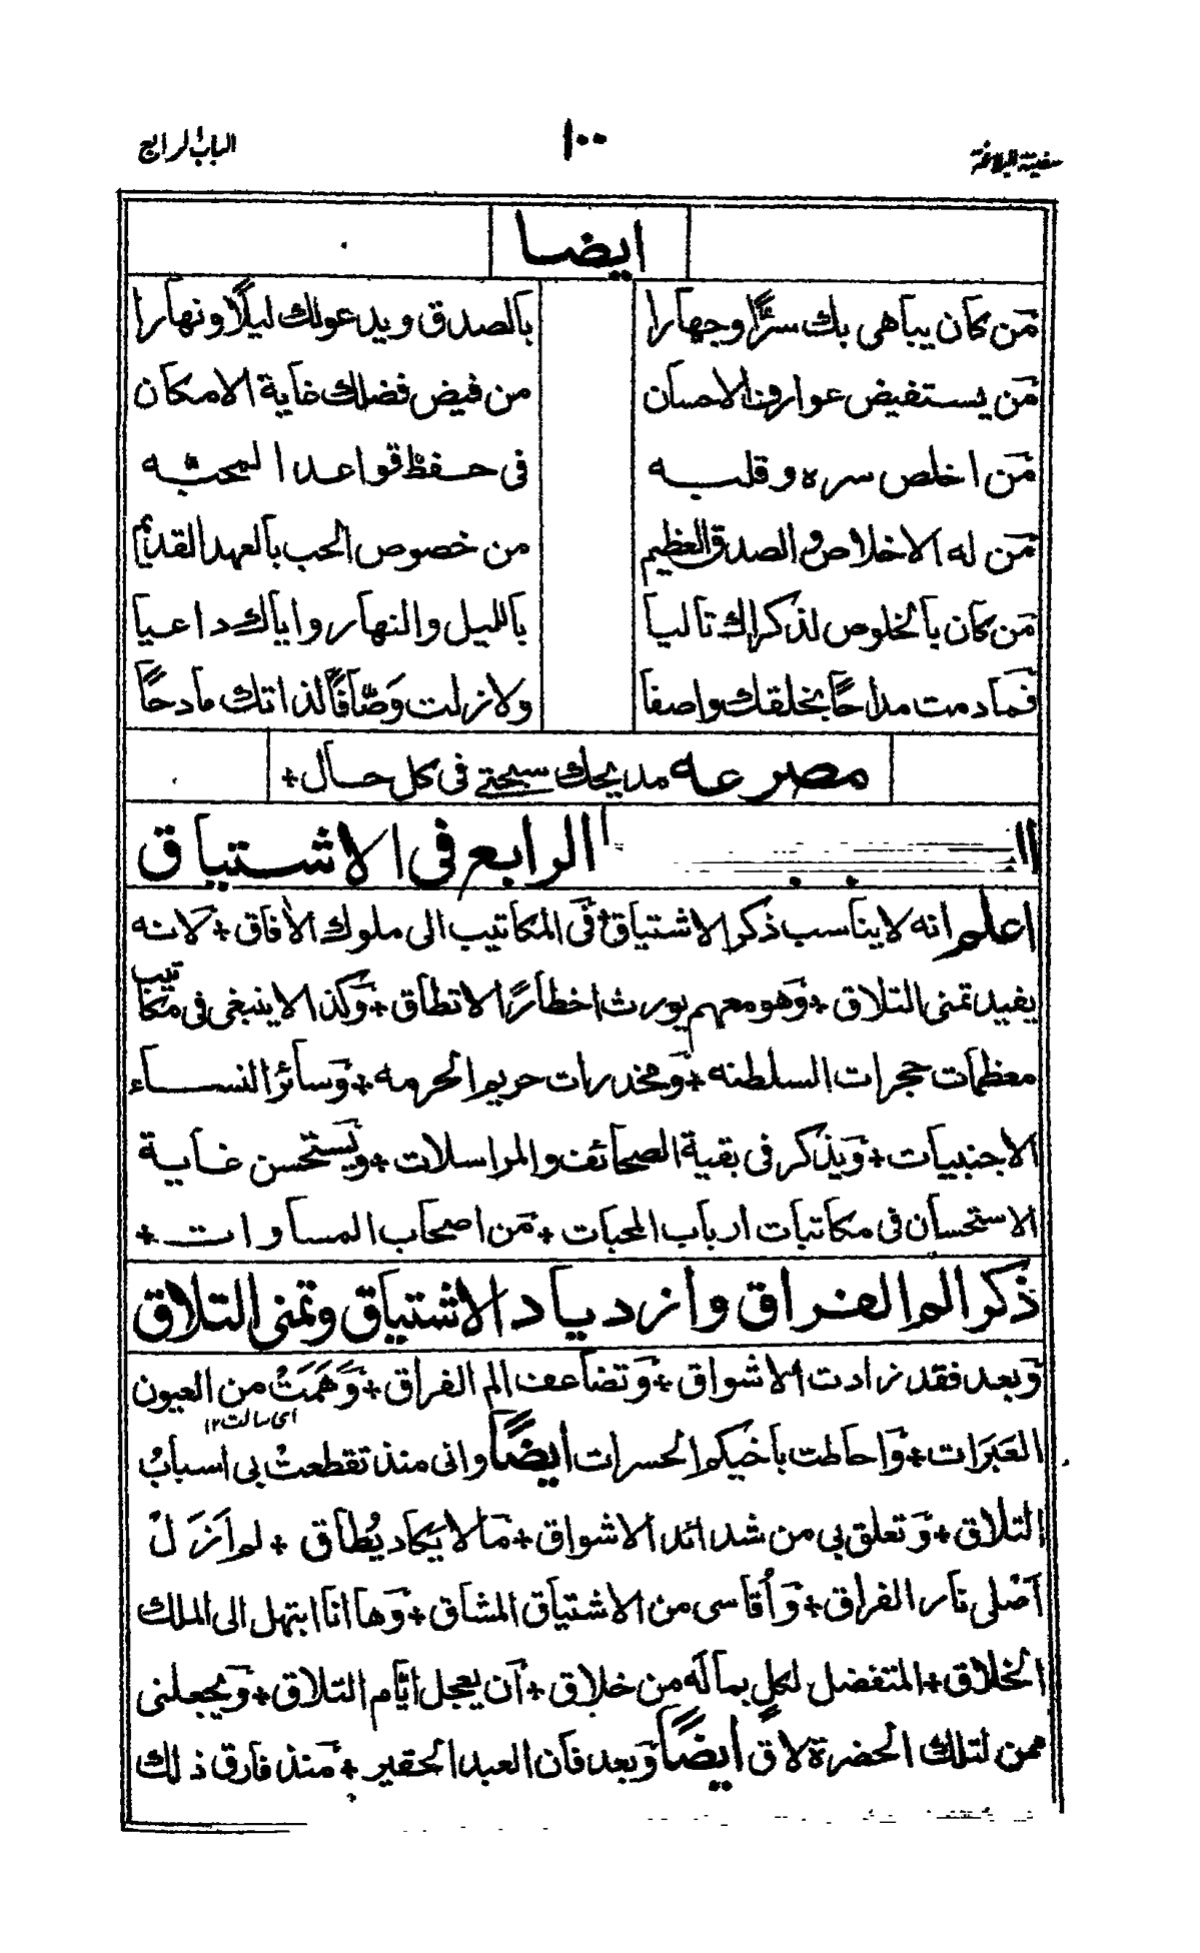 سفينة البلاغة ١٠٠ الباب الرابع
ايضا
مَن كان يباهي بك سرًّا وجهارا بالصدق ويدعولك ليلًا ونهارا
مَن يستفيض عوارف الاحسان من فيض فضلك غاية الامكان
مَن اخلص سره وقلبه فى حفظ قواعد المحبّه
مَن له الاخلاص والصدق العظيم من خصوص الحب بالعهد القديم
مَن كان بالخلوص لذكراك تاليا بالليل والنهار واياك داعيا
فما دمت مداحًا بخلقك واصفا ولا زلت وَصّافًا لذاتك مادحًا
مصرعه مديحك سبحتي فى كل حال +
الرابع فى الاشتياق
اعلم انه لا يناسب ذكر الاشتياق فى المكاتيب الى ملوك الأفاق + لانه
يفيد تمنى التلاق + وَهو معهم يورث اخطارًا لا تطاق + وَكذا لا ينبغى فى مكاتيب
معظمات حجرات السلطنه + وَمخدرات حريم الحرمه + وَسائر النساء
الاجنبيات + وَيذكر فى بقية الصحائف والمراسلات + وَيستحسن غاية
الاستحسان فى مكاتبات ارباب المحبات + مَن اصحاب المساوات +
ذكر الم الفراق وازدياد الاشتياق وتمنى التلاق
وَبعد فقد زادت الاشواق + وَتضاعف الم الفراق + وَهَمَتْ من العيون
اى سالت ١٢
العَبَرات + وَاحاطت باخيكم الحسرات ايضًا وانى منذ تقطعتْ بى اسبابُ
التلاق + وَتعلق بى من شدائد الاشواق + مَا لا يكاد يُطاق + لم اَزَلْ
اَصْلى نار الفراق + وَاُقاسى من الاشتياق المشاق + وَها انا ابتهل الى الملك
الخلاق + المتفضل لكلٍ بماله من خلاق + اَن يعجل ايّام التلاق + وَيجعلنى
ممن لتلك الحضرة لاق ايضًا وَبعد فان العبد الحقير + مَنذ فارق ذلك